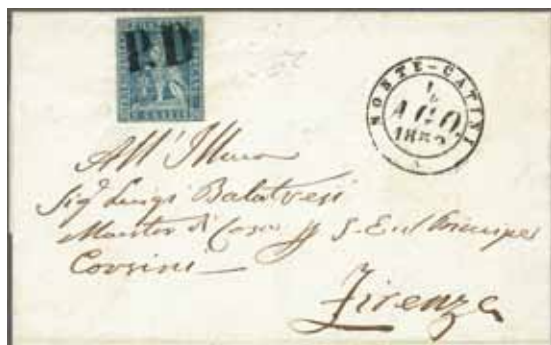 P.D
MONTE-CATINI
AGO.
All'Illmo
Sigr Luigi
Maestro di Casa S. E. il Principe
Corsini
Firenze